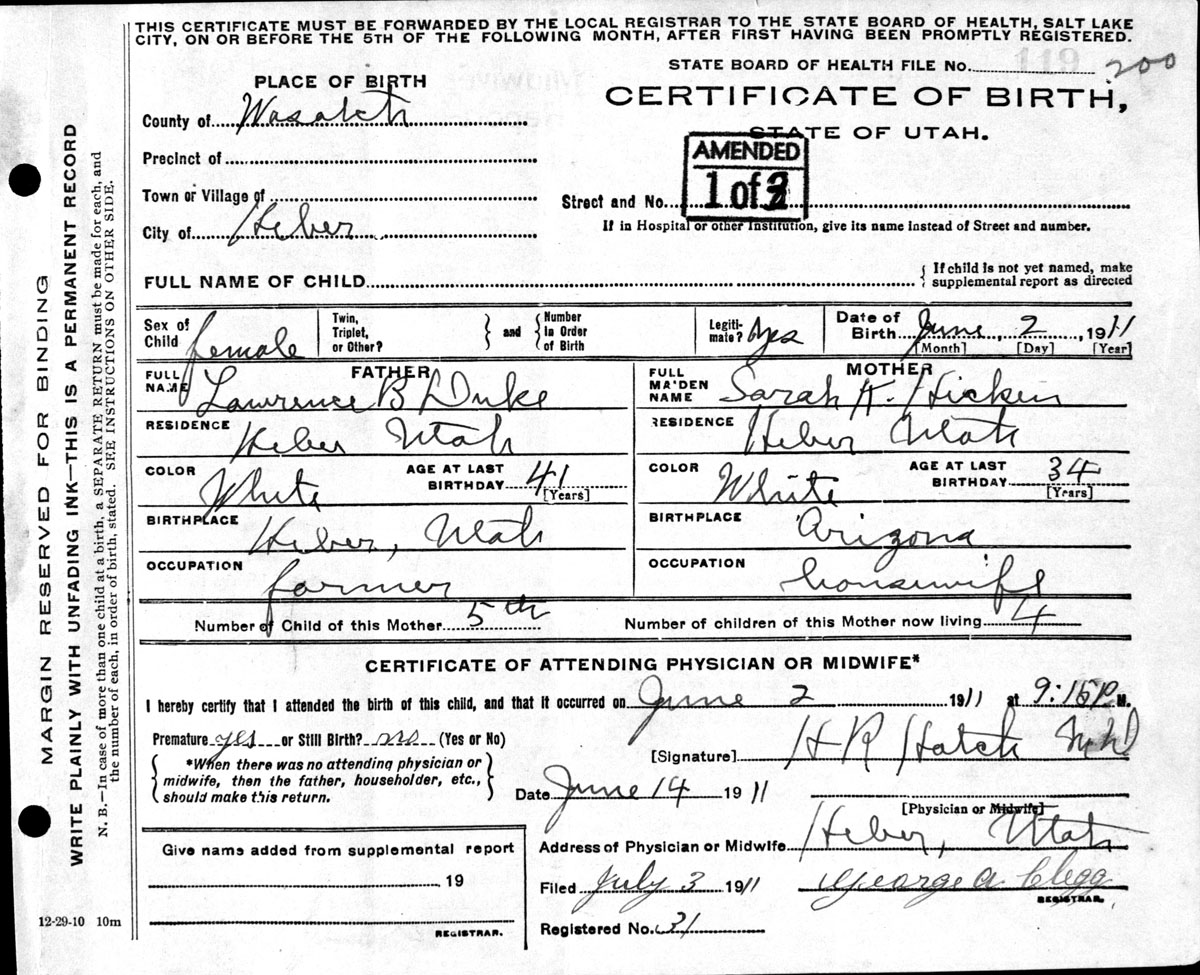 THIS CERTIFICATE MUST BE FORWARDED BY THE LOCAL REGISTRAR TO THE STATE BOARD OF HEALTH, SALT LAKE
CITY, ON OR BEFORE THE 5TH OF THE FOLLOWING MONTH, AFTER FIRST HAVING BEEN PROMPTLY REGISTERED.
STATE BOARD OF HEALTH FILE No. 119 200
PLACE OF BIRTH
CERTIFICATE OF BIRTH,
STATE OF UTAH.
County of Wasatch
AMENDED
Precinct of
1 of
Town or Village of
Street and No.
City of Heber
If in Hospital or other Institution, give its name instead of Street and number.
FULL NAME OF CHILD
{ If child is not yet named, make
supplemental report as directed
Sex of Child female
Twin, Triplet, or Other? } and { Number in Order of Birth
Legiti- mate? Yes
Date of Birth June 2, 1911
[Month] [Day] [Year]
FATHER
FULL NAME Lawrence B Duke
RESIDENCE Heber Utah
COLOR White
AGE AT LAST BIRTHDAY 41
[Years]
BIRTHPLACE Heber, Utah
OCCUPATION farmer
MOTHER
FULL MAIDEN NAME Sarah H. Hicken
RESIDENCE Heber Utah
COLOR White
AGE AT LAST BIRTHDAY 34
[Years]
BIRTHPLACE Arizona
OCCUPATION housewife
Number of Child of this Mother 5th
Number of children of this Mother now living 4
CERTIFICATE OF ATTENDING PHYSICIAN OR MIDWIFE*
I hereby certify that I attended the birth of this child, and that it occurred on June 2 1911 at 9:15 P M.
Premature yes or Still Birth? no (Yes or No)
[Signature] H R Hatch M.D.
{ *When there was no attending physician or
midwife, then the father, householder, etc.,
should make this return. }
Date June 14 1911
[Physician or Midwife]
Give name added from supplemental report
Address of Physician or Midwife Heber, Utah
, 19
Filed July 3 1911 George A Clegg
REGISTRAR.
Registered No. 31
REGISTRAR.
12-29-10 10m
MARGIN RESERVED FOR BINDING
WRITE PLAINLY WITH UNFADING INK—THIS IS A PERMANENT RECORD
N. B.—In case of more than one child at a birth, a SEPARATE RETURN must be made for each, and
the number of each, in order of birth, stated. SEE INSTRUCTIONS ON OTHER SIDE.